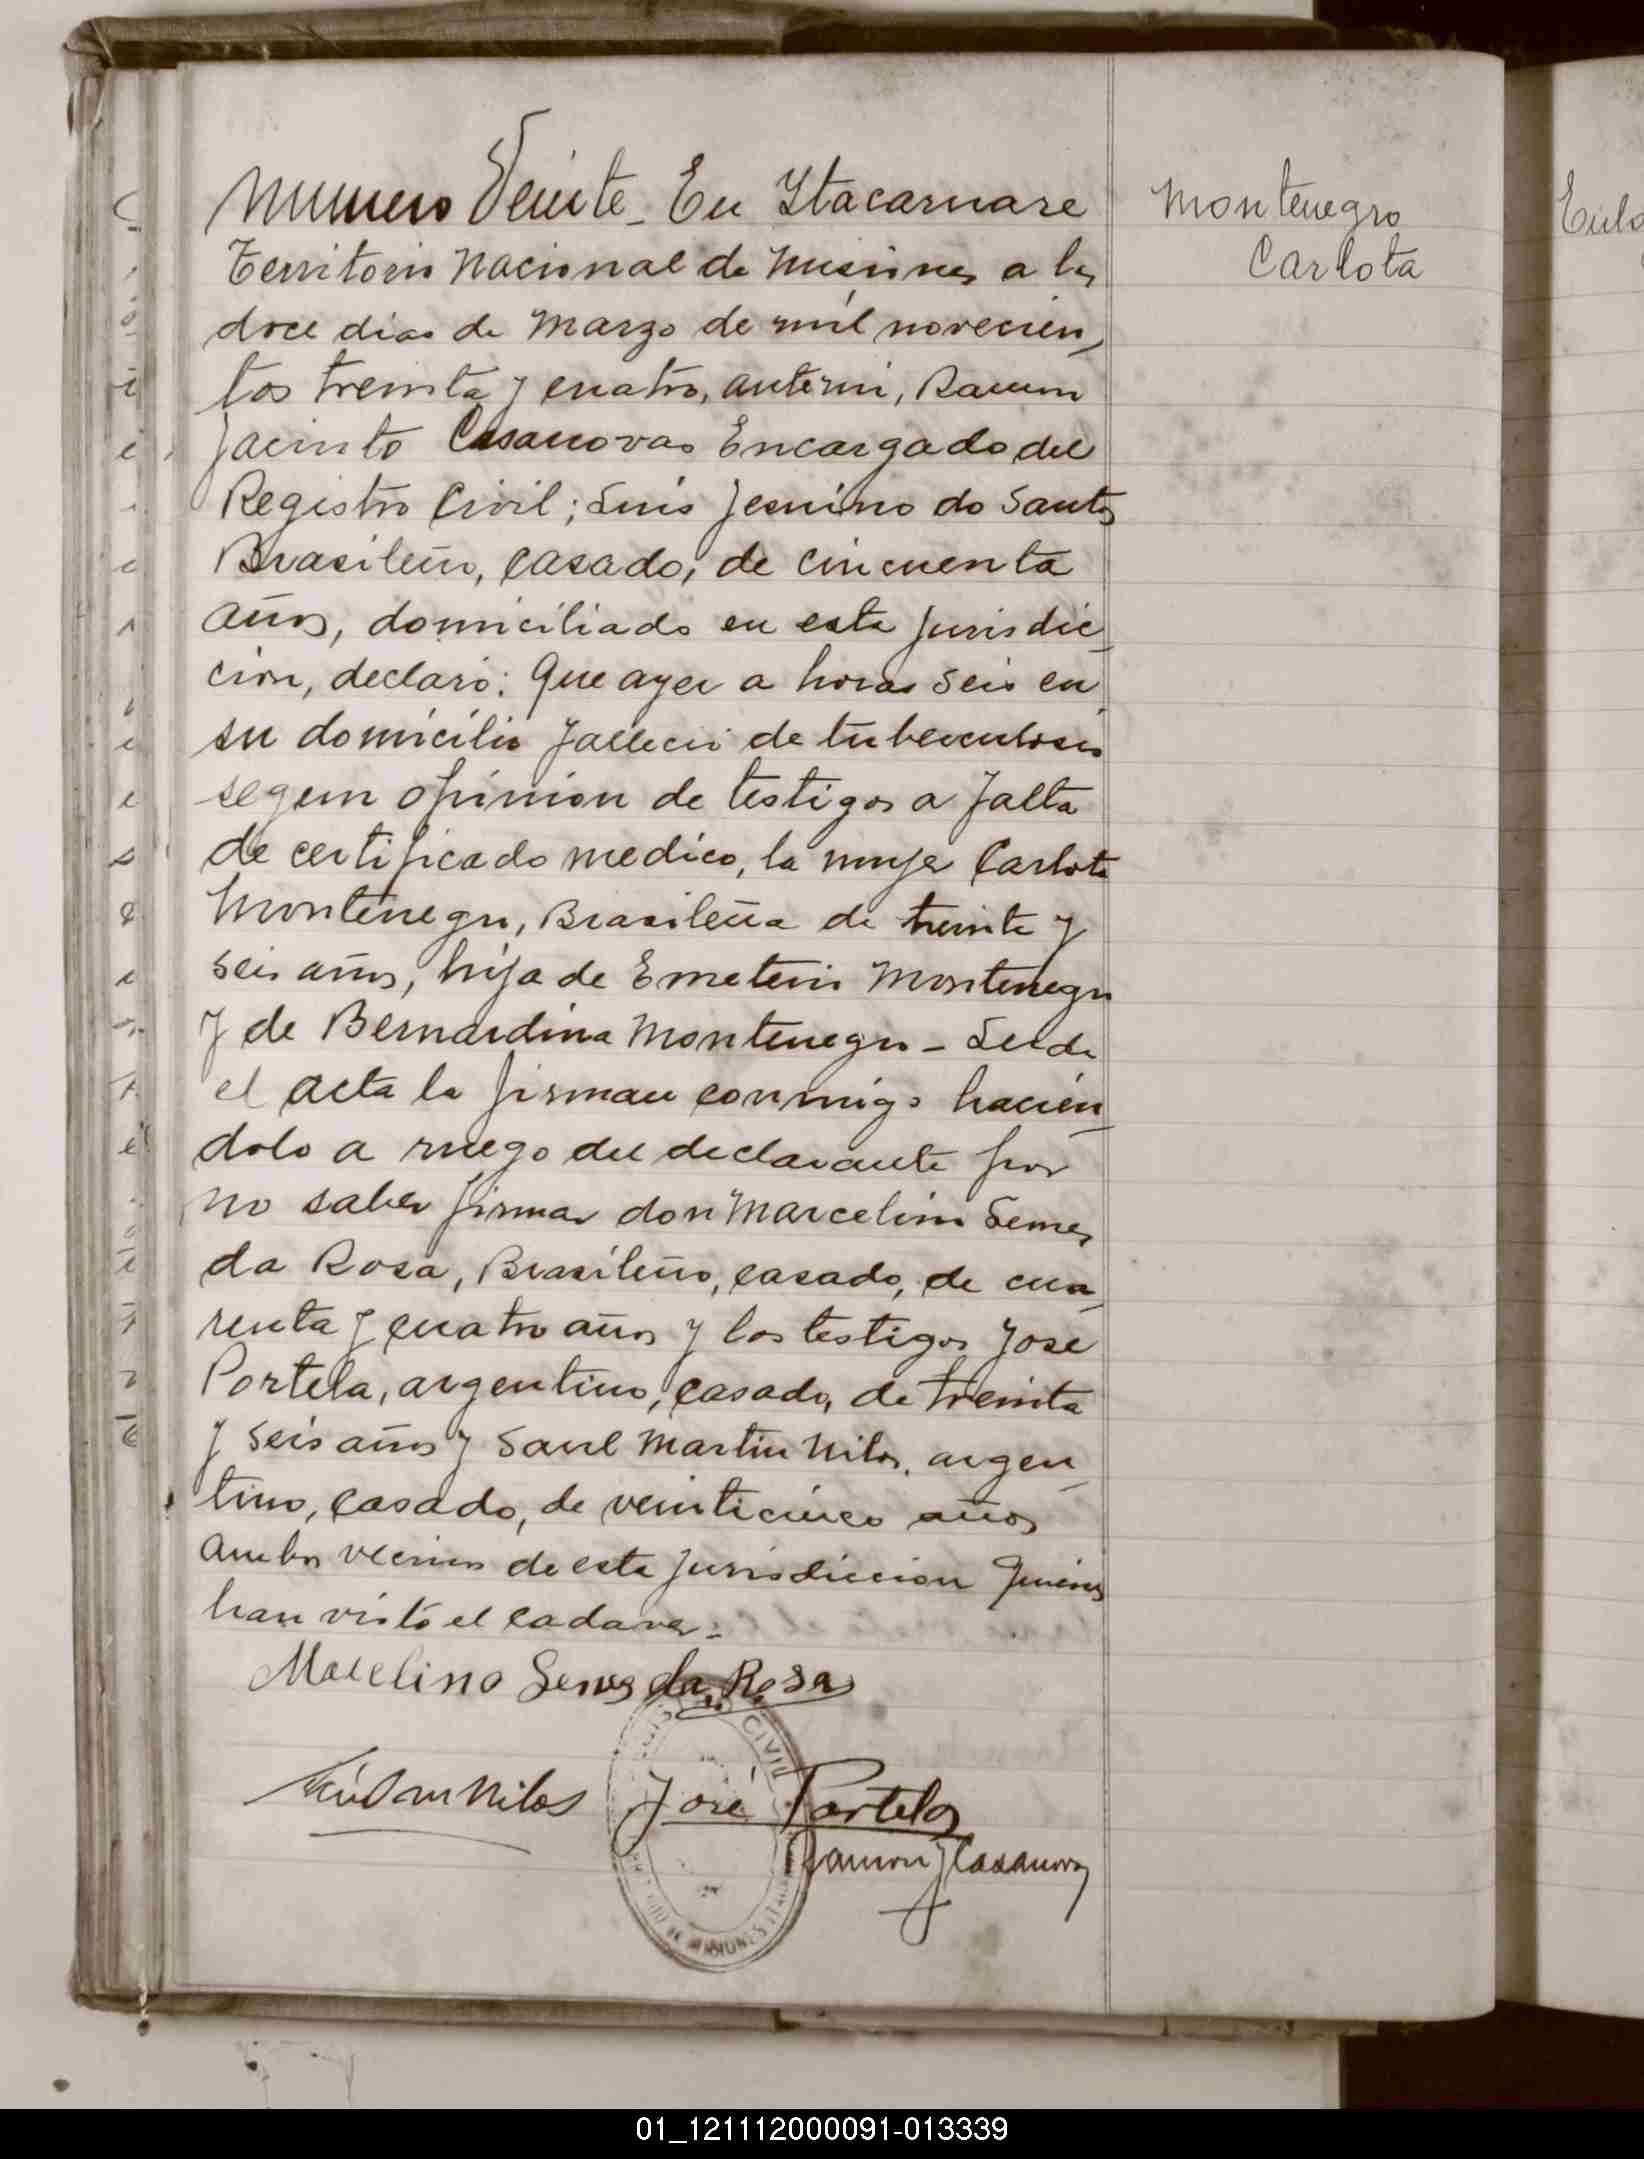 Numero Veinte_ En Itacaruare
Territorio Nacional de Misiones a los
doce dias de Marzo de mil novecien_
tos treinta y cuatro, ante mi, Ramon
Jacinto Casanovas Encargado del
Registro Civil; Luis Jenuino do Santos
Brasileño, casado, de cincuenta
años, domiciliado en esta jurisdic_
cion, declaró: Que ayer a horas seis en
su domicilio fallecio de tuberculosis
segun opinion de testigos a falta
de certificado medico, la mujer Carlota
Montenegro, Brasileña de treinta y
seis años, hija de Emeterio Montenegro
y de Bernardina Montenegro_ Leida
el acta la firman conmigo hacien_
dolo a ruego del declarante por
no saber firmar don Marcelino Semes
da Rosa, Brasileño, casado, de cua_
renta y cuatro años y los testigos Jose
Portela, argentino, casado, de treinta
y seis años y Saul Martin Nilos, argen_
tino, casado, de veinticinco años
ambos vecinos de esta jurisdiccion quienes
han visto el cadaver_
Marcelino Semes da Rosa
Nilos José Portela
Ramon J Casanovas
CIVIL
DE MISIONES
Montenegro
Carlota
01_121112000091-013339